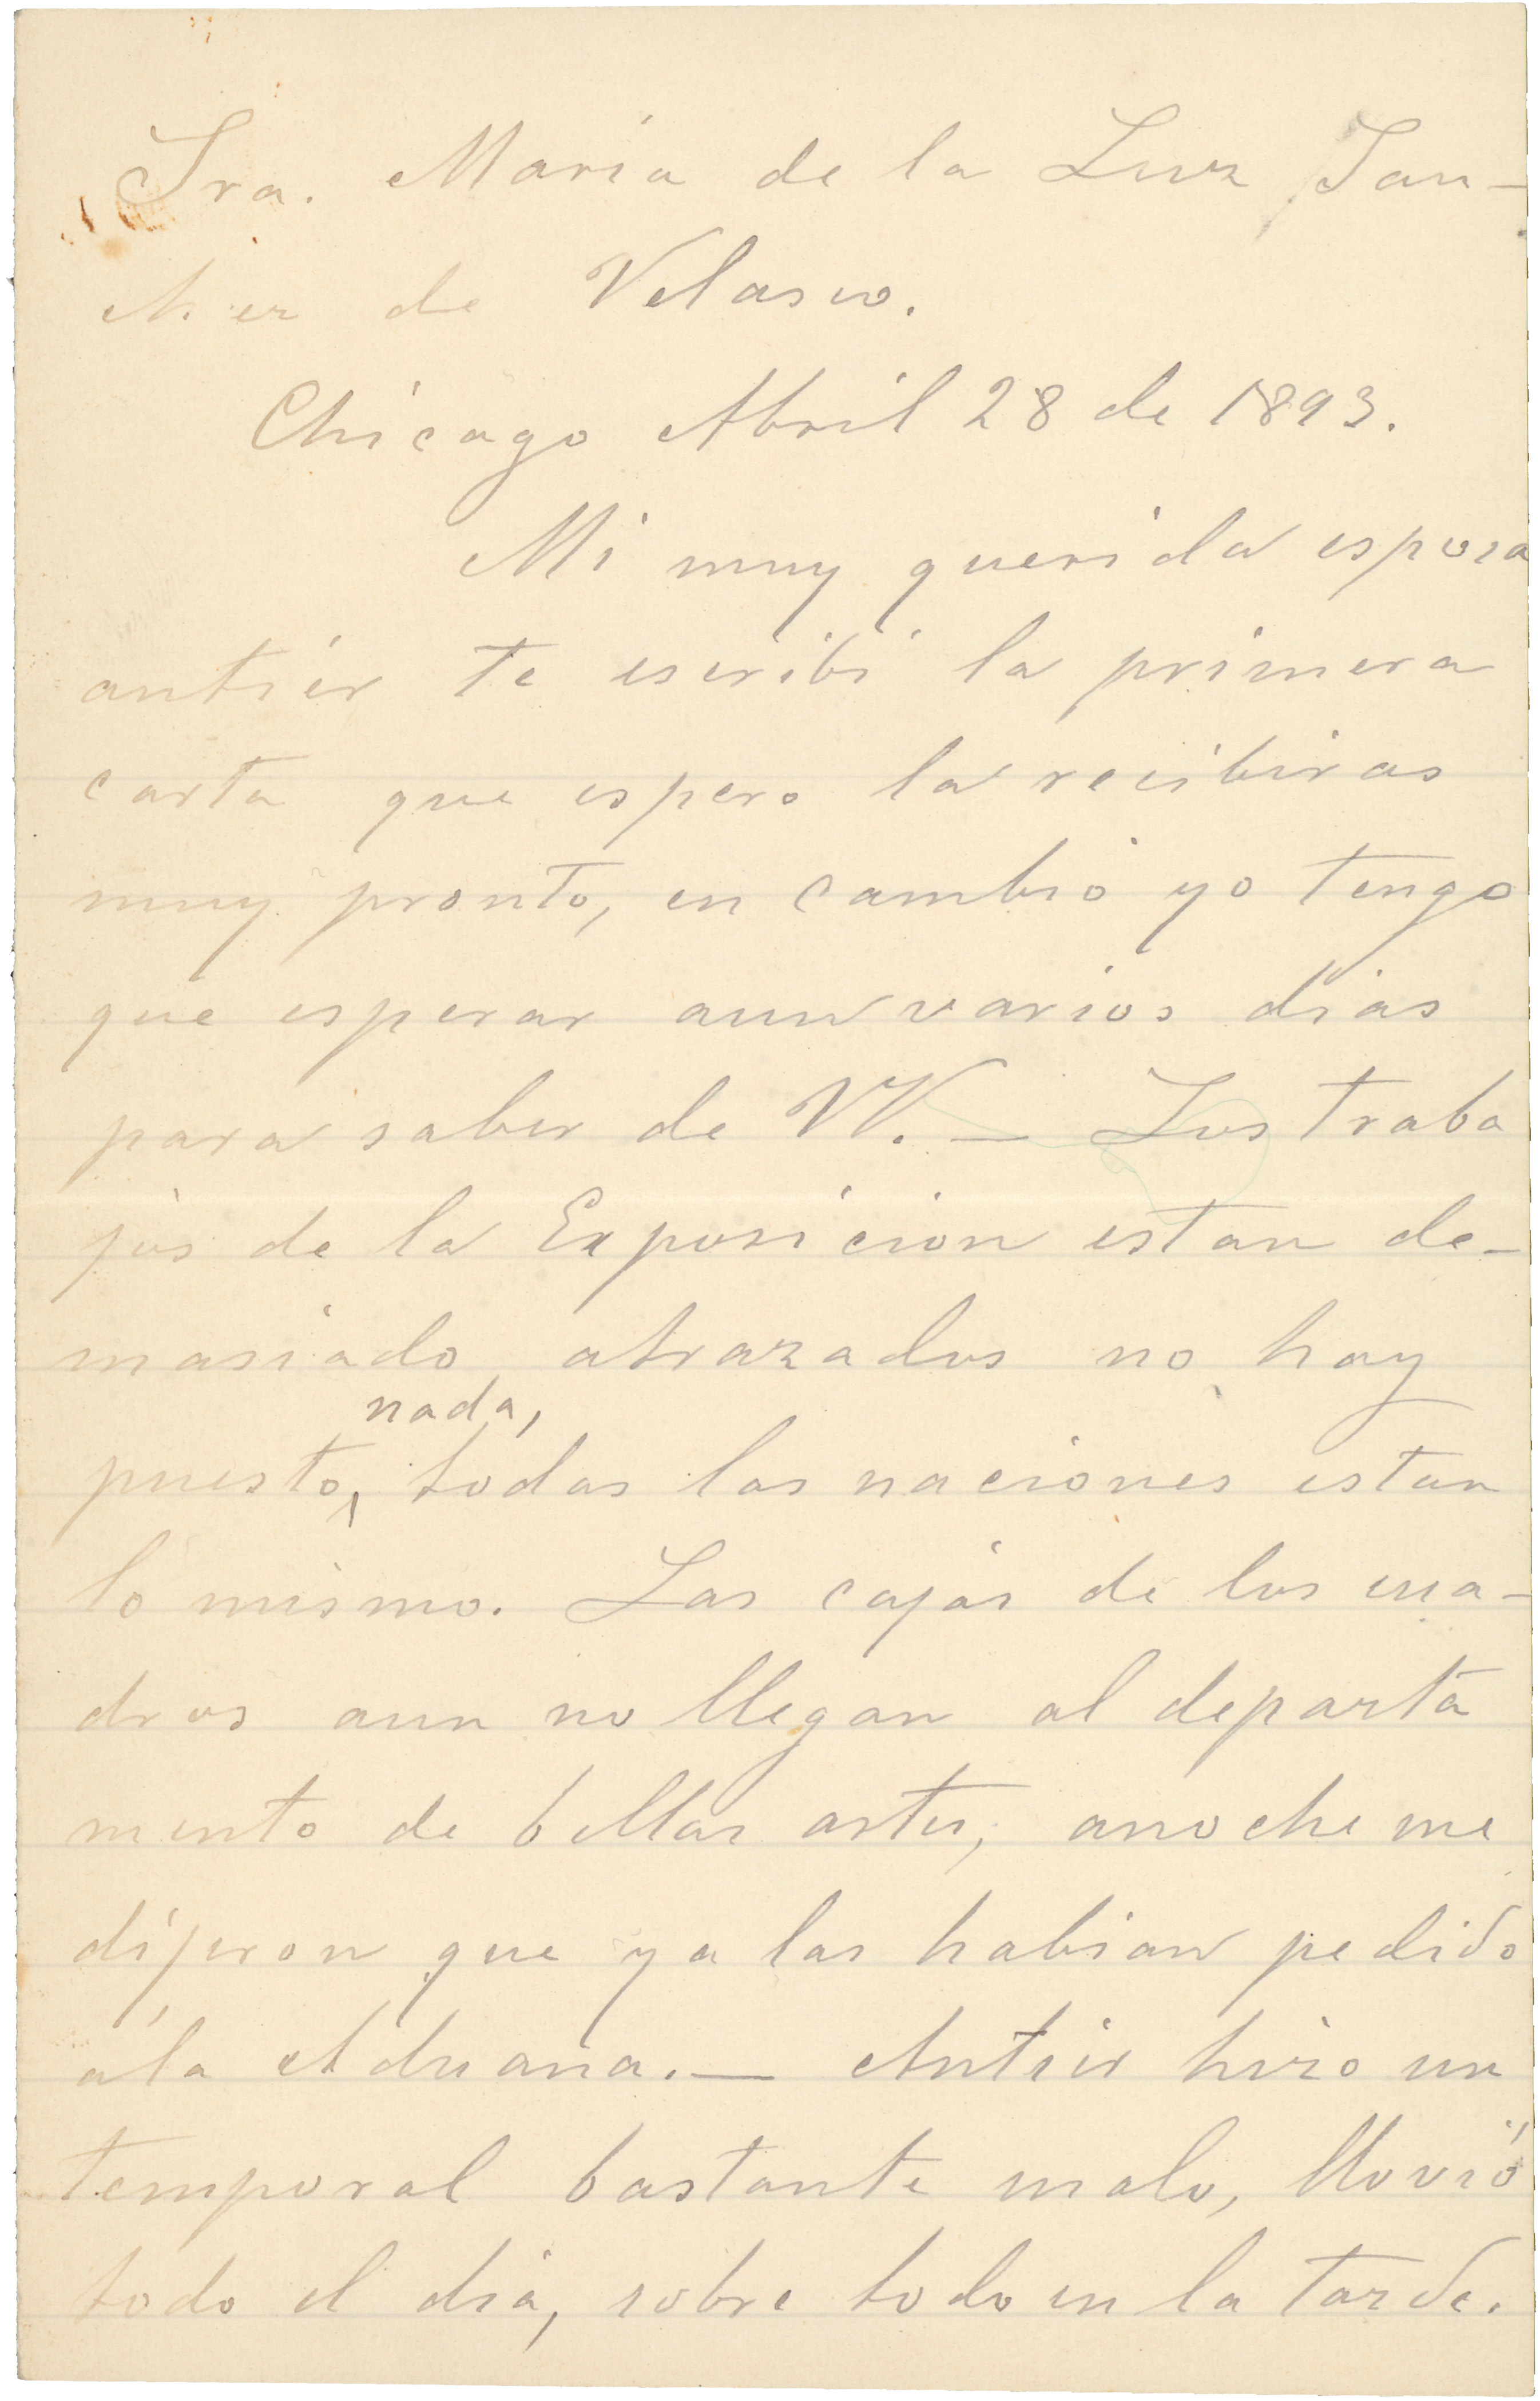 Sra. Maria de la Luz San-
chez de Velasco.
Chicago Abril 28 de 1893.
Mi muy querida esposa
antier te escribi la primera
carta que espero la recibiras
muy pronto, en cambio yo tengo
que esperar aun varios dias
para saber de VV. — Los traba
jos de la Exposicion estan de-
masiado atrazados no hay
nada,
puesto, todas las naciones estan
lo mismo. Las cajas de los cua-
dros aun no llegan al departa
mento de bellas artes, anoche me
dijeron que ya las habian pedido
a la Aduana. — Antier hizo un
temporal bastante malo, llovió
todo el dia, sobre todo en la tarde.